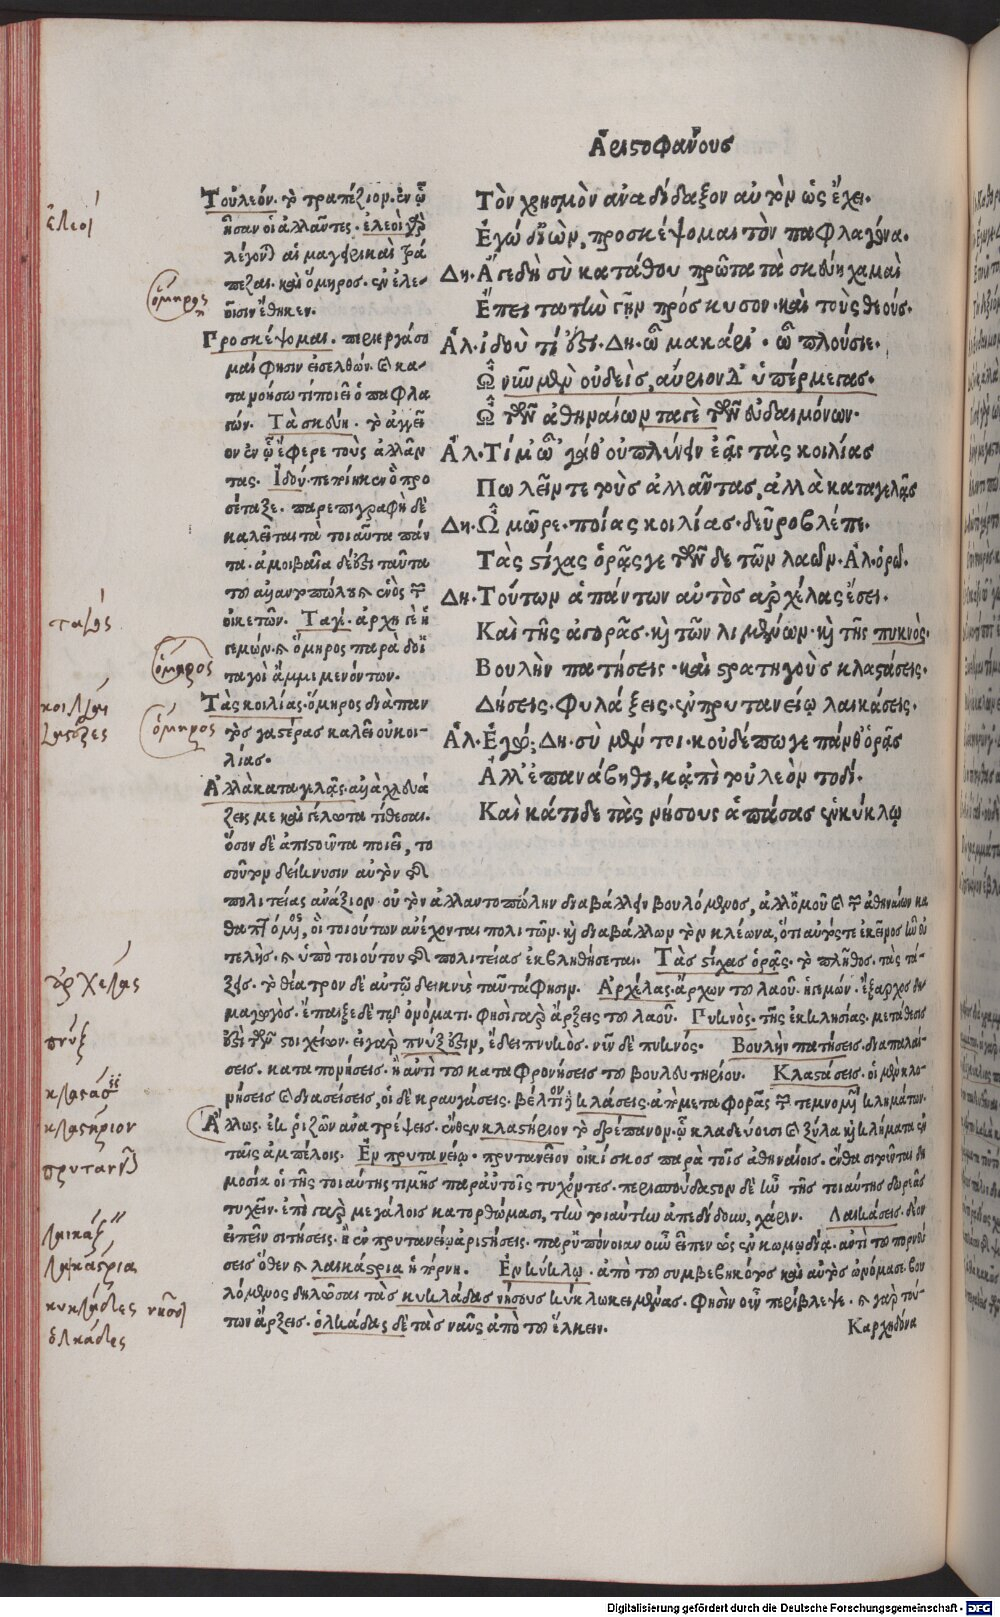 Ἀριστοφάνους
Τὸν χρησμὸν ἀναδίδαξον αὐτὸν ὡς ἔχει.
Ἐγὼ δ' ἰὼν, προσκέψομαι τὸν παφλαγόνα.
Δη. Ἄγε δὴ σὺ κατάθου πρῶτα τὰ σκεύη χαμαὶ
Ἔπειτα τὴν γῆν πρόσκυσον καὶ τοὺς θεούς.
Ἀλ. ἰδοὺ τί ἐστι. Δη. ὦ μακάρι'. ὦ πλούσιε.
Ὦ νῦν μὲν οὐδεὶς, αὔριον δ' ὑπέρμεγας.
Ὦ τῶν ἀθηναίων ταγὲ τῶν εὐδαιμόνων.
Ἀλ. Τί μ' ὦ 'γάθ' οὐ πλύνειν ἐᾷς τὰς κοιλίας
Πωλεῖν τε τοὺς ἀλλᾶντας, ἀλλὰ καταγελᾷς
Δη. Ὦ μῶρε. ποίας κοιλίας. δεῦρο βλέπε.
Τὰς στίχας ὁρᾷς γε τῶν δε τῶν λαῶν. Ἀλ. ὁρῶ.
Δη. Τούτων ἁπάντων αὐτὸς ἀρχέλας ἔσει.
Καὶ τῆς ἀγορᾶς. καὶ τῶν λιμένων. καὶ τῆς πυκνὸς.
Βουλὴν πατήσεις. καὶ στρατηγοὺς κλαστάσεις.
Δήσεις. φυλάξεις. ἐν πρυτανείῳ λαικάσεις.
Ἀλ. Ἐγώ; Δη. σὺ μέν τοι. κοὐδέπω γε πάνθ' ὁρᾷς
Ἀλλ' ἐπανάβηθι, κἀπὶ τοὐλεὸν τοδί.
Καὶ κάτιδε τὰς νήσους ἁπάσας ἐν κύκλῳ
Τοὐλεόν. τὸ τραπέζιον. ἐν ᾧ
ἦσαν οἱ ἀλλᾶντες. ἐλεοὶ γὰρ
λέγονται αἱ μαγειρικαὶ τρά
πεζαι. καὶ ὅμηρος. ἐν ἐλε-
οῖσιν ἔθηκεν.
Προσκέψομαι. περιεργάσο
μαί φησιν εἰσελθών. καὶ κα-
τανοήσω τί ποιεῖ ὁ παφλα
γών. Τὰ σκεύη. τὸ ἀγγεῖ
ον ἐν ᾧ ἔφερε τοὺς ἀλλᾶν
τας. Ἰδού. πεποίηκεν ὃ προ
σέταξε. παρεπιγραφὴ δὲ
καλεῖται τὰ τοιαῦτα πάν
τα. ἀμοιβαῖα δέ ἐστι ταῦτα
τοῦ ἀλλαντοπώλου καὶ ἑνὸς τῶν
οἰκετῶν. Ταγέ. ἀρχηγὲ ἡ
γεμών. καὶ ὅμηρος παρὰ δοῒ
ταγοὶ ἄμμι μενόντων.
Τὰς κοιλίας. ὅμηρος διαπαν
τὸς γαστέρας καλεῖ οὐ κοι-
λίας.
Ἀλλὰ καταγελᾷς. ἀλλὰ χλευά
ζεις με καὶ γέλωτα τίθεσαι.
ὅσον δὲ ἀπιστοῦντα ποιεῖ, το
σοῦτον δείκνυσιν αὐτὸν τῆς
πολιτείας ἀνάξιον. οὐ τὸν ἀλλαντοπώλην διαβάλλειν βουλόμενος, ἀλλ' ὁμοῦ καὶ τῶν ἀθηναίων κα
θαπτόμενος, οἳ τοιούτων ἀνέχονται πολιτῶν. καὶ διαβάλλων τὸν κλέωνα, ὅτι αὐτός τε ἐκεῖνος ἦν εὐ
τελὴς. καὶ ὑπὸ τοιούτου τῆς πολιτείας ἐκβληθήσεται. Τὰς στίχας ὁρᾷς. τὸ πλῆθος. τὰς τά-
ξεις. τὸ θέατρον δὲ αὐτῷ δεικνὺς ταῦτά φησιν. Ἀρχέλας. ἄρχων τοῦ λαοῦ. ἡγεμών. ἔξαρχος δη
μαγωγός. ἔπαιξε δὲ τῷ ὀνόματι. φησὶ γὰρ ἄρξεις τοῦ λαοῦ. Πυκνὸς. τῆς ἐκκλησίας. μετάθεσις
ἐστὶ τῶν στοιχείων. εἰ γὰρ πνύξ ἐστιν, ἔδει πνυκὸς. νῦν δὲ πυκνός. Βουλὴν πατήσεις. διαπαλαί-
σεις. καταπονήσεις. ἢ ἀντὶ τοῦ καταφρονήσεις τοῦ βουλευτηρίου. Κλαστάσεις. οἱ μὲν κλο-
νήσεις καὶ διασείσεις, οἱ δὲ κραυγάσεις. βέλτιον κλάσεις. ἀπὸ μεταφορᾶς τῶν τεμνομένων κλημάτων.
Ἄλλως. ἐκ ριζῶν ἀνατρέψεις. ἔνθεν κλαστήριον τὸ δρέπανον. ᾧ κλαδεύουσι καὶ ξύλα καὶ κλήματα ἐν
ταῖς ἀμπέλοις. Ἐν πρυτανείῳ. πρυτανεῖον οἰκίσκος παρὰ τοῖς ἀθηναίοις. ἔνθα σιτοῦνται δη
μοσίᾳ οἱ τῆς τοιαύτης τιμῆς παρ' αὐτοῖς τυχόντες. περισπούδαστον δὲ ἦν τῆς τοιαύτης δωρεᾶς
τυχεῖν. ἐπὶ γὰρ μεγάλοις κατορθώμασι, τὴν τοιαύτην ἀπεδίδουν, χάριν. Λαικάσεις. δέον
εἰπεῖν σιτήσεις. ἢ ἐν πρυτανείῳ ἀριστήσεις. παρ' ὑπόνοιαν οὖν εἶπεν ὡς ἐν κωμῳδίᾳ. ἀντὶ τοῦ πορνεύ
σεις ὅθεν καὶ λαικάστρια ἡ πόρνη. Ἐν κύκλῳ. ἀπὸ τοῦ συμβεβηκότος καὶ αὐτὸς ὠνόμασε. βου
λόμενος δηλῶσαι τὰς κυκλάδας νήσους κύκλῳ κειμένας. φησὶν οὖν περίβλεψε. καὶ γὰρ τού-
των ἄρξεις. ὁλκάδας δὲ τὰς ναῦς ἀπὸ τοῦ ἕλκειν.
Καρχηδόνα
ἐλεοί
ὅμηρος
ταγός
ὅμηρος
ὅμηρος
ἀρχέλας
πνύξ
κλαστήριον
λαικάστρια
κυκλάδες νῆσοι
ὁλκάδες
Digitalisierung gefördert durch die Deutsche Forschungsgemeinschaft - DFG